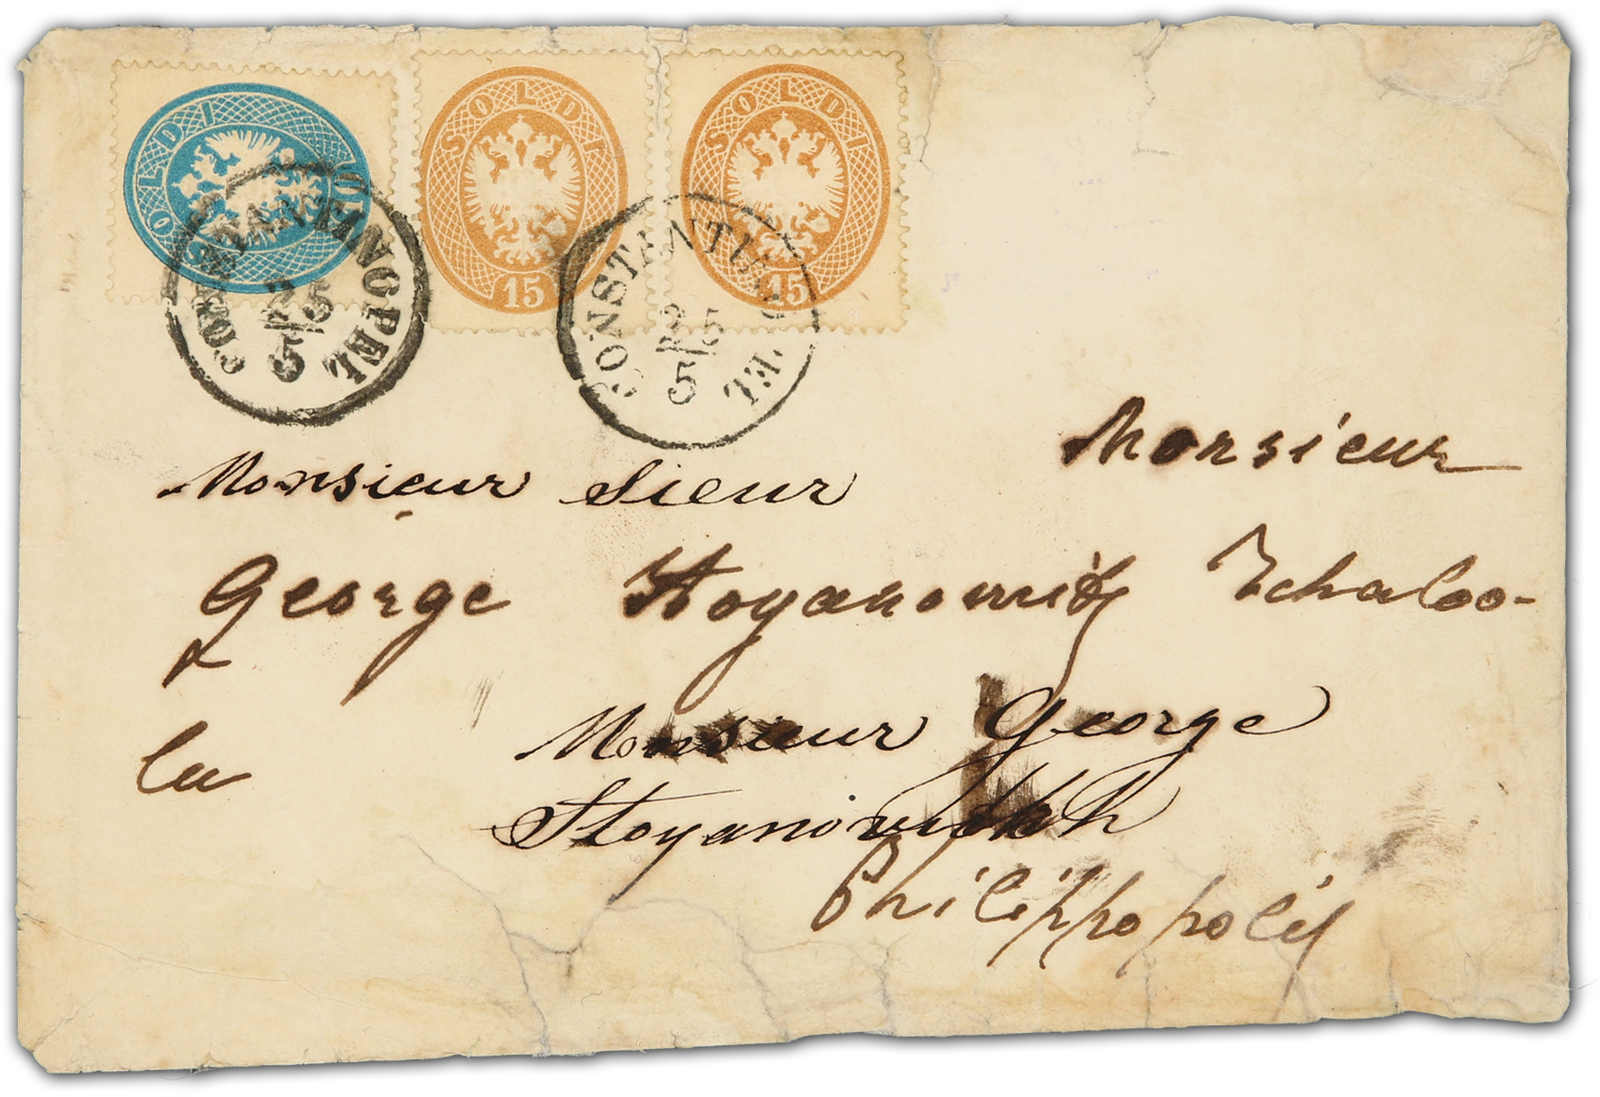 SOLDI 10
SOLDI 15
SOLDI 15
CONSTANTINOPEL
5
5
CONSTANTINOPEL
5
5
Monsieur
Monsieur Sieur
George Stoyanowitz Tchaloo-
la
Monsieur George
Stoyanovitch
Philippopolis